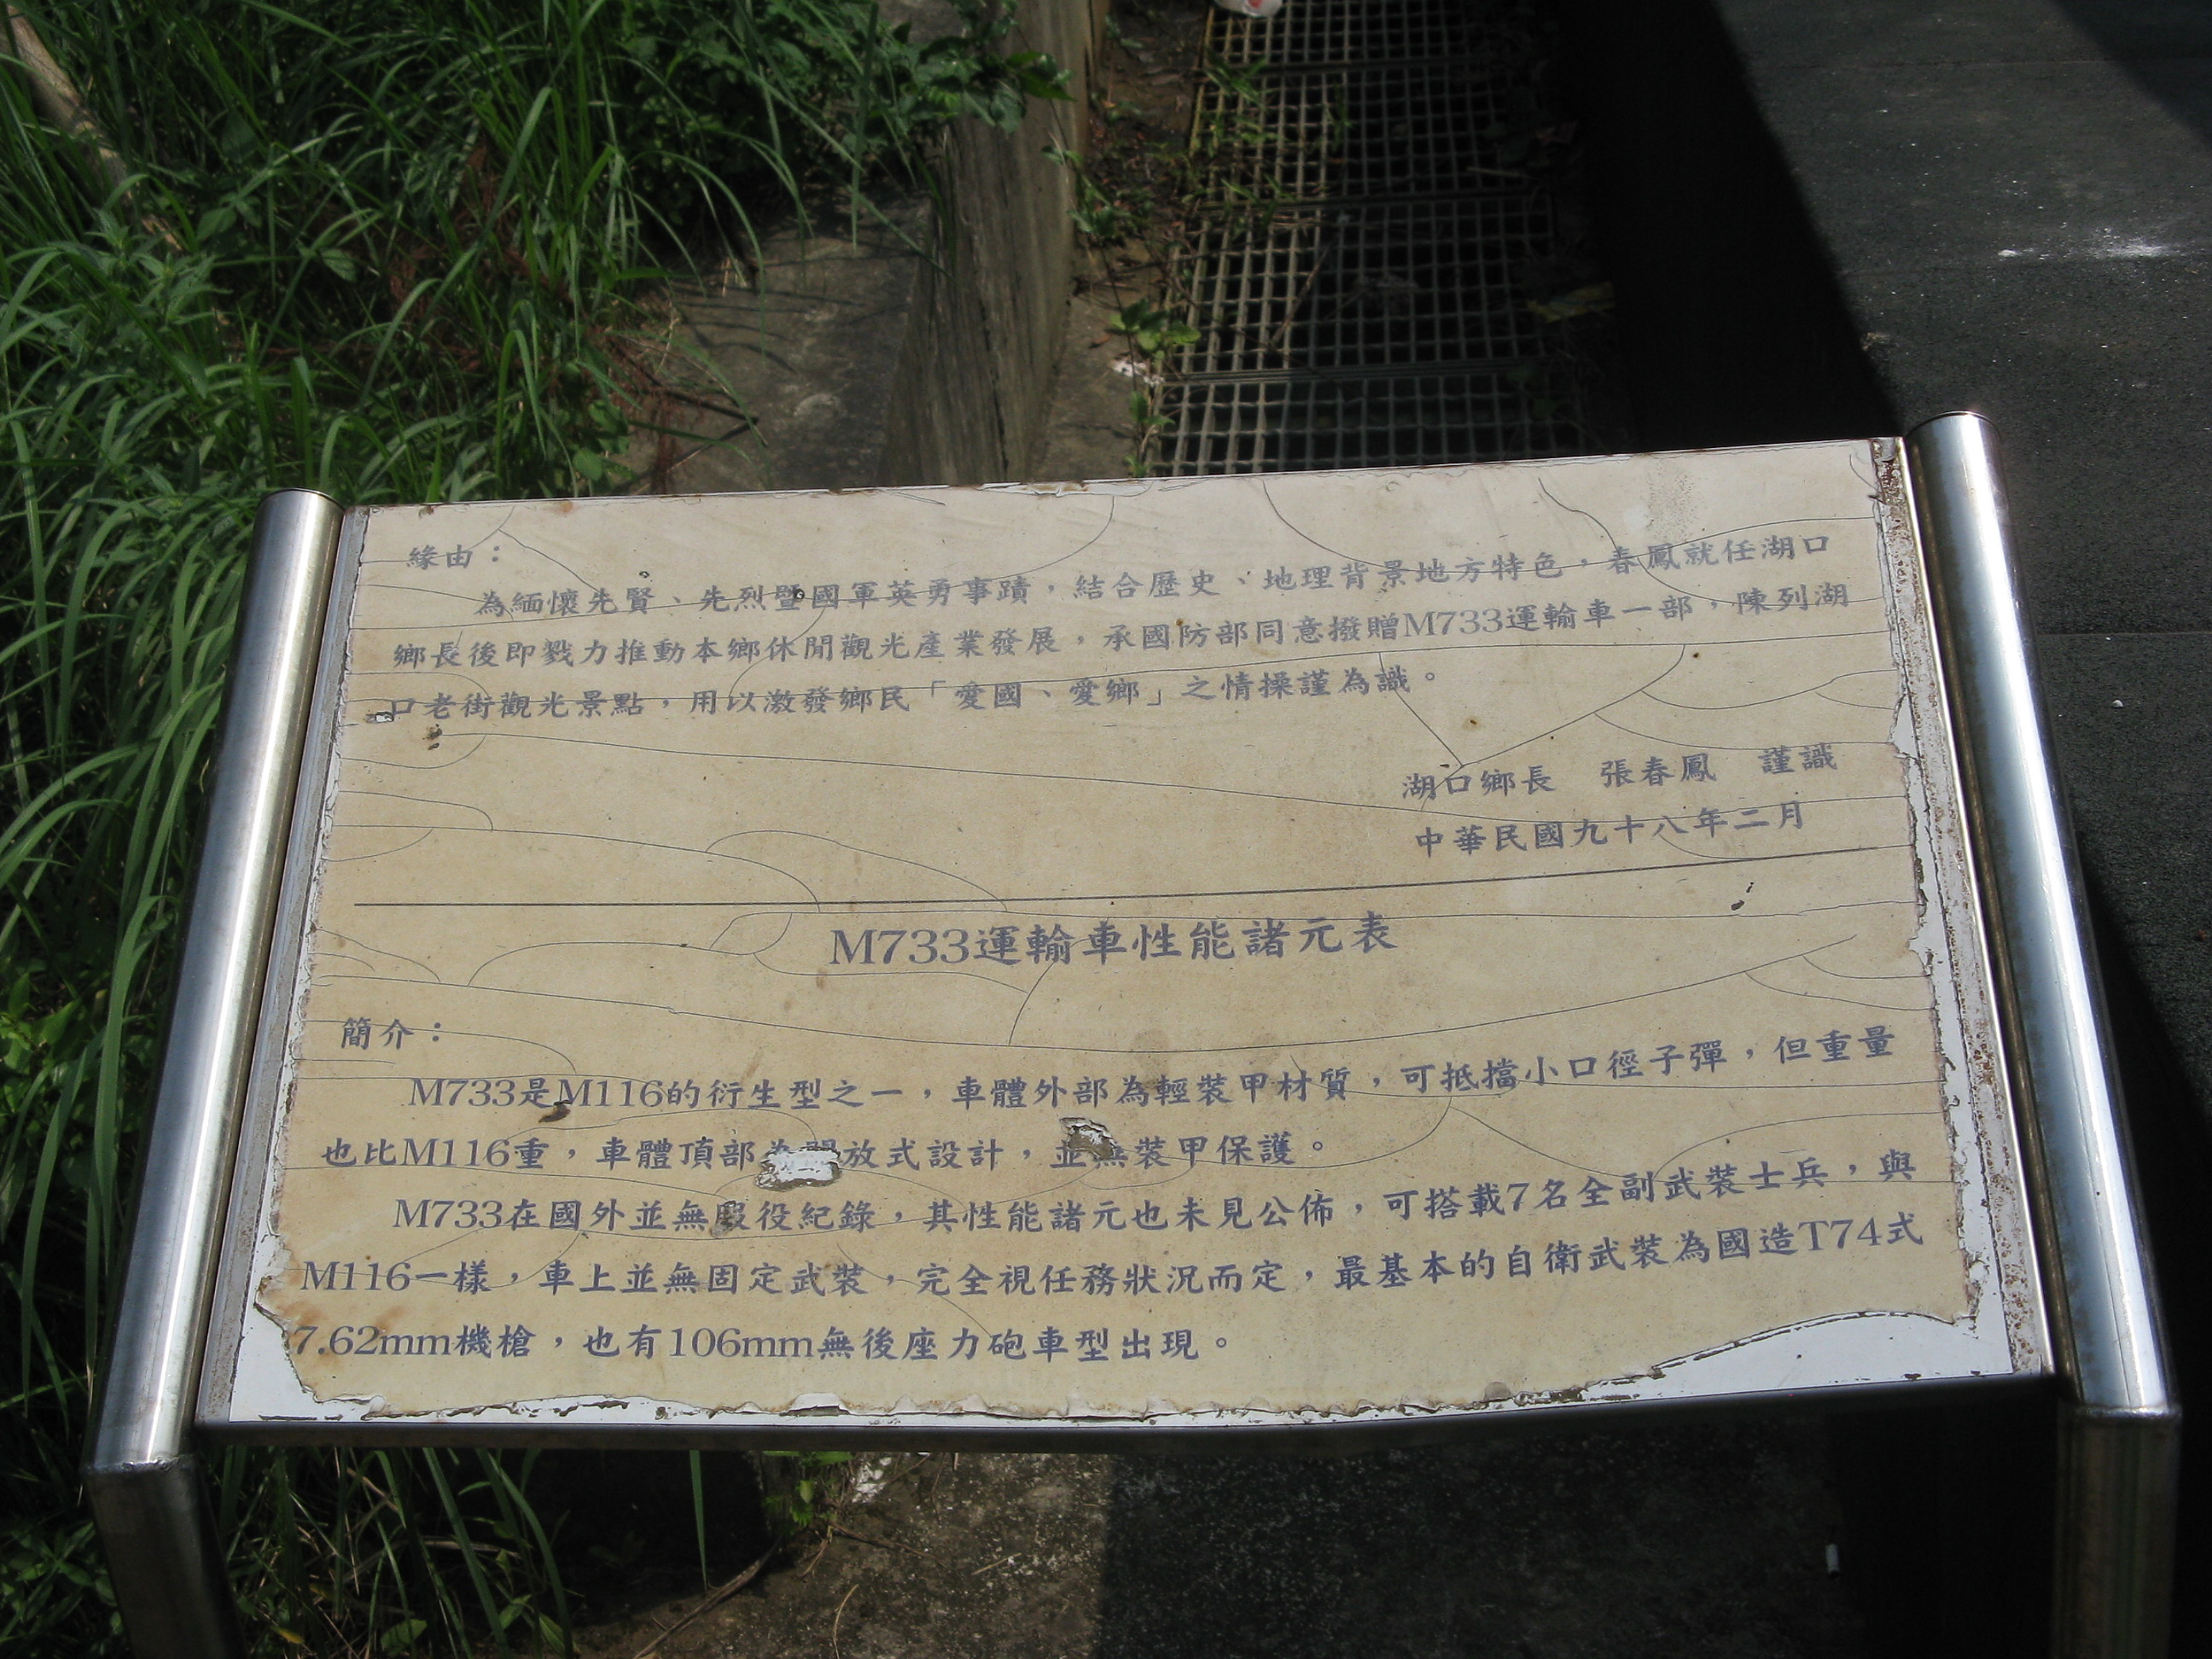 緣由：
為緬懷先賢、先烈暨國軍英勇事蹟，結合歷史、地理背景地方特色，春鳳就任湖口
鄉長後即戮力推動本鄉休閒觀光產業發展，承國防部同意撥贈M733運輸車一部，陳列湖
口老街觀光景點，用以激發鄉民「愛國、愛鄉」之情操謹為識。
湖口鄉長　張春鳳　謹識
中華民國九十八年二月
M733運輸車性能諸元表
簡介：
M733是M116的衍生型之一，車體外部為輕裝甲材質，可抵擋小口徑子彈，但重量
也比M116重，車體頂部為開放式設計，並無裝甲保護。
M733在國外並無服役紀錄，其性能諸元也未見公佈，可搭載7名全副武裝士兵，與
M116一樣，車上並無固定武裝，完全視任務狀況而定，最基本的自衛武裝為國造T74式
7.62mm機槍，也有106mm無後座力砲車型出現。